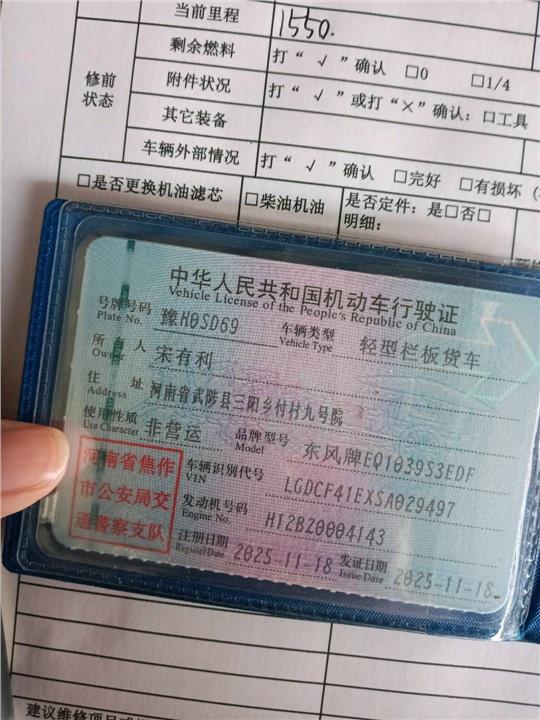 当前里程 1550.
剩余燃料 打“√”确认 □0 □1/4
修前状态
附件状况 打“√”或打“×”确认：□工具
其它装备
车辆外部情况 打“√”确认 □完好 □有损坏（
□是否更换机油滤芯 □柴油机油 是否定件：是□否□
明细：
中华人民共和国机动车行驶证
Vehicle License of the People's Republic of China
号牌号码 豫H0SD69 车辆类型 轻型栏板货车
Plate No. Vehicle Type
所有人 宋有利
Owner
住址 河南省武陟县三阳乡村村九号院
Address
使用性质 非营运 品牌型号 东风牌EQ1039S3EDF
Use Character Model
河南省焦作
市公安局交
通警察支队
车辆识别代号 LGDCF41EXSA029497
VIN
发动机号码 H12BZ0004143
Engine No.
注册日期 2025-11-18 发证日期 2025-11-18
Register Date Issue Date